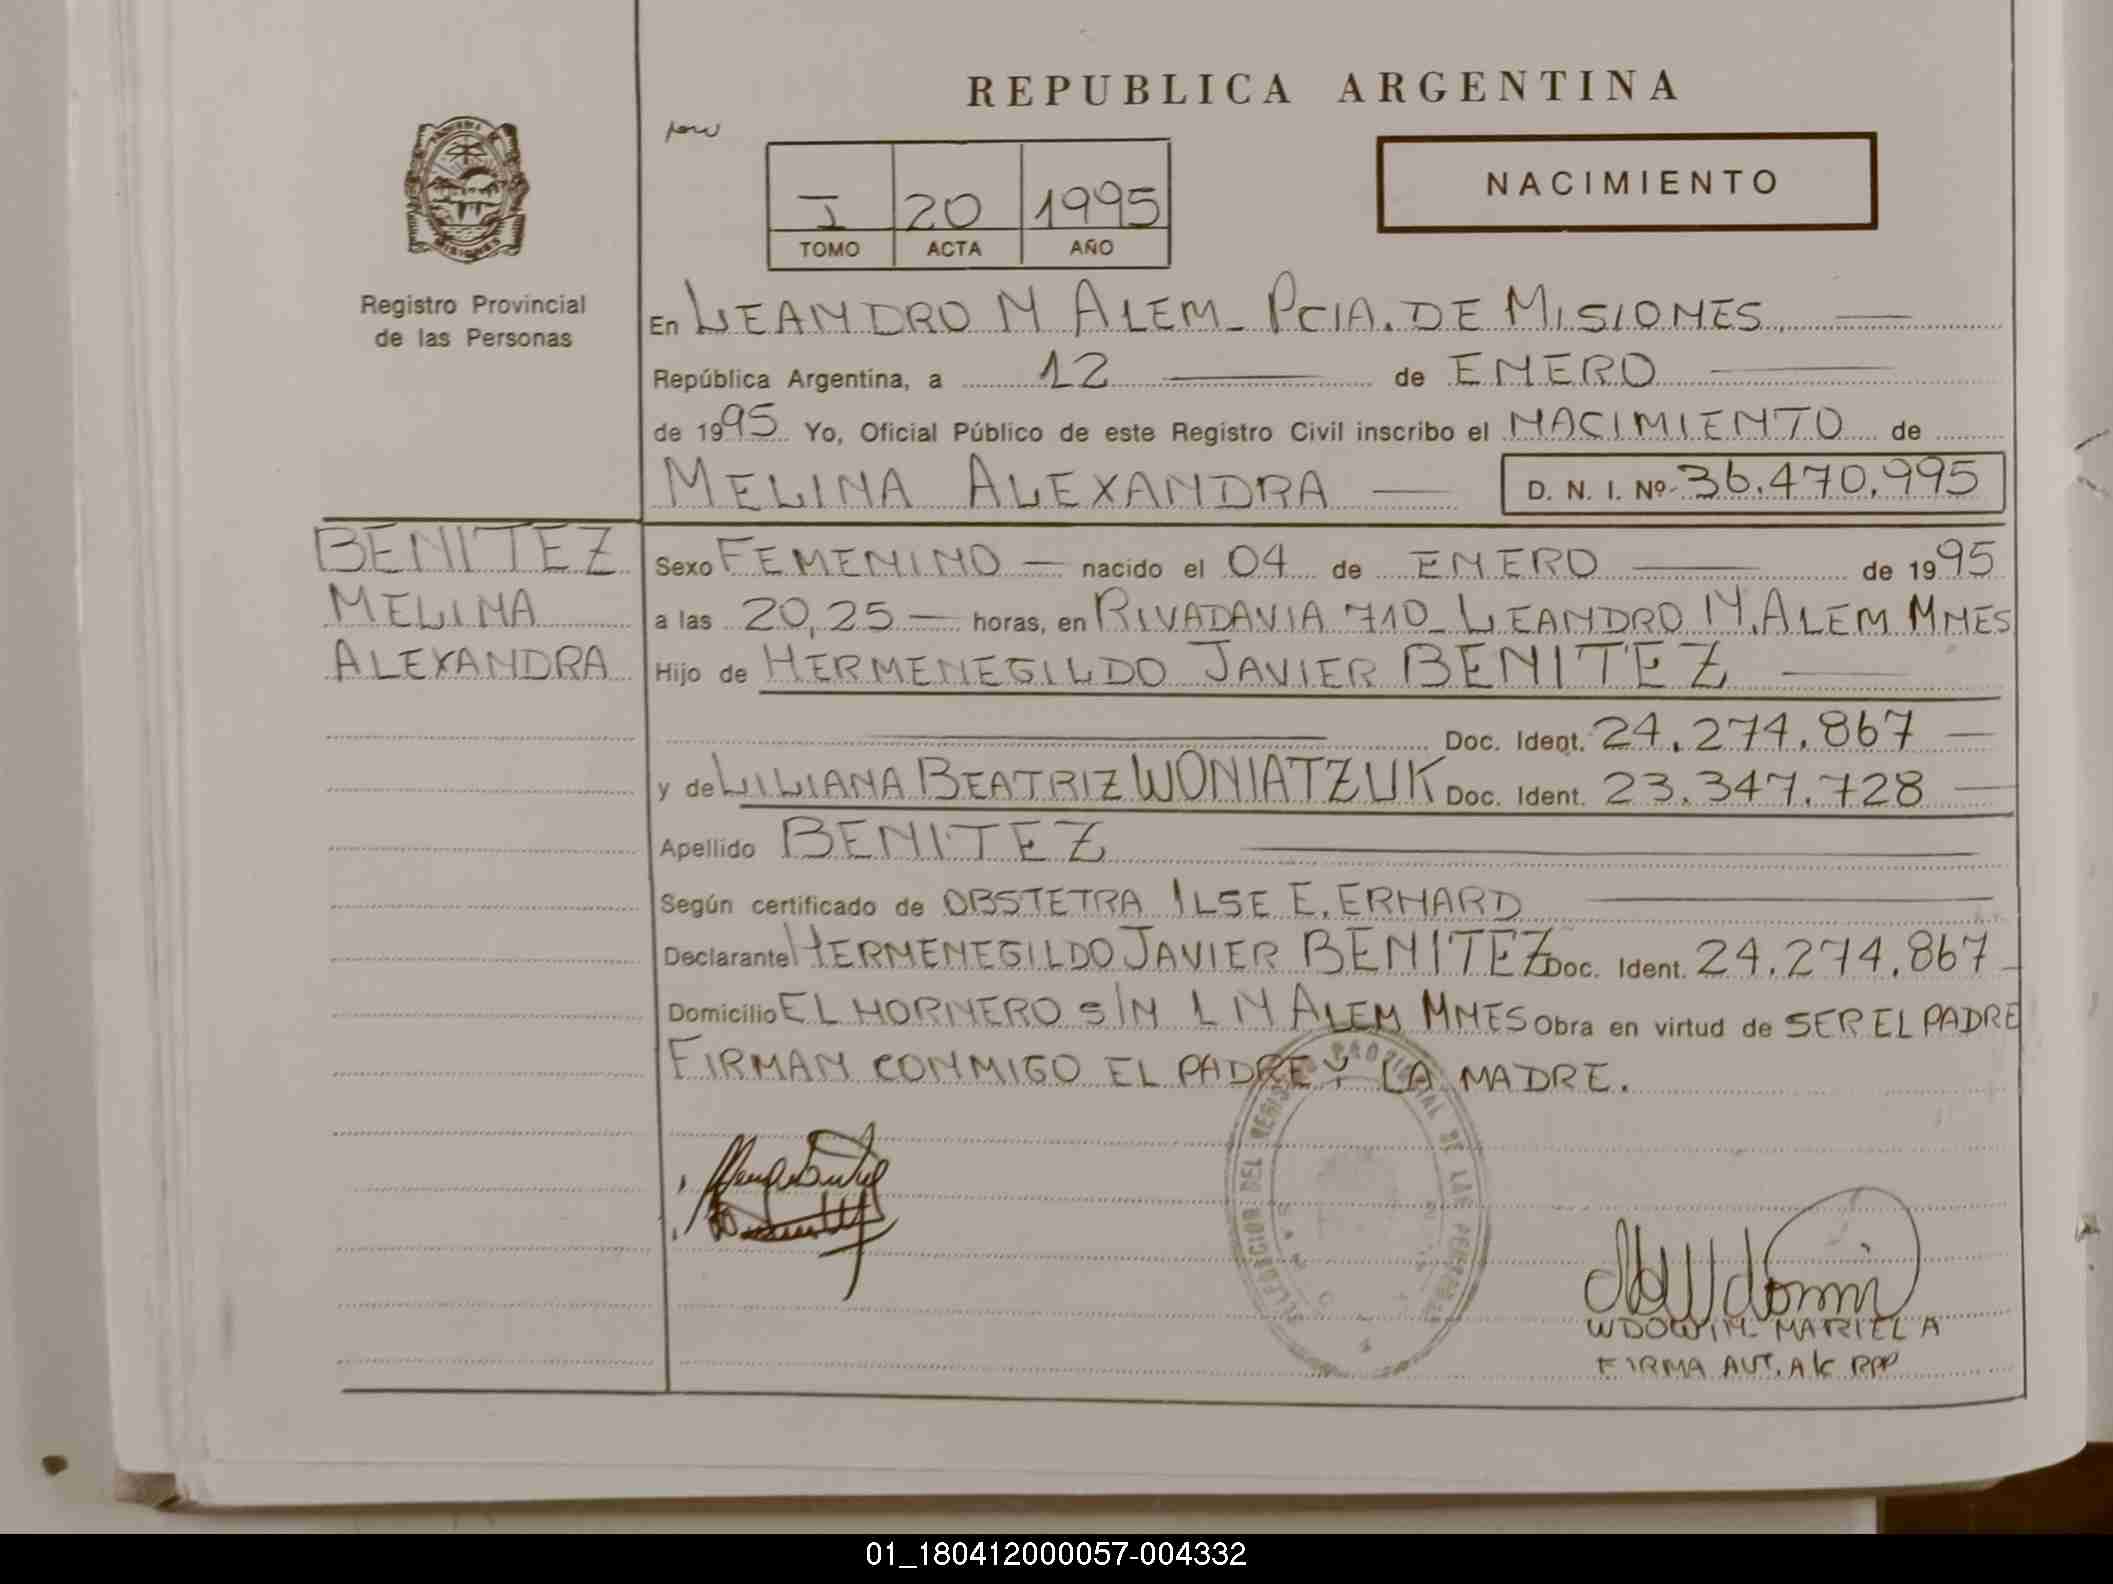 REPUBLICA ARGENTINA
NACIMIENTO
I 20 1995
TOMO ACTA AÑO
Registro Provincial
de las Personas
En LEANDRO N ALEM - PCIA. DE MISIONES
República Argentina, a 12 de ENERO
de 1995 Yo, Oficial Público de este Registro Civil inscribo el NACIMIENTO de
MELINA ALEXANDRA D. N. I. Nº 36.470.995
BENITEZ
MELINA
ALEXANDRA
Sexo FEMENINO nacido el 04 de ENERO de 1995
a las 20,25 horas, en RIVADAVIA 710 - LEANDRO N. ALEM MNES
Hijo de HERMENEGILDO JAVIER BENITEZ
Doc. Ident. 24.274.867
y de LILIANA BEATRIZ WONIATZUK Doc. Ident. 23.347.728
Apellido BENITEZ
Según certificado de OBSTETRA ILSE E. ERHARD
Declarante HERMENEGILDO JAVIER BENITEZ Doc. Ident. 24.274.867
Domicilio EL HORNERO S/N L N ALEM MNES Obra en virtud de SER EL PADRE
FIRMAN CONMIGO EL PADRE Y LA MADRE.
DEL REGISTRO PROVINCIAL DE LAS PERSONAS
WDOWIN MARIELA
FIRMA AUT. A/C RPP
01_180412000057-004332